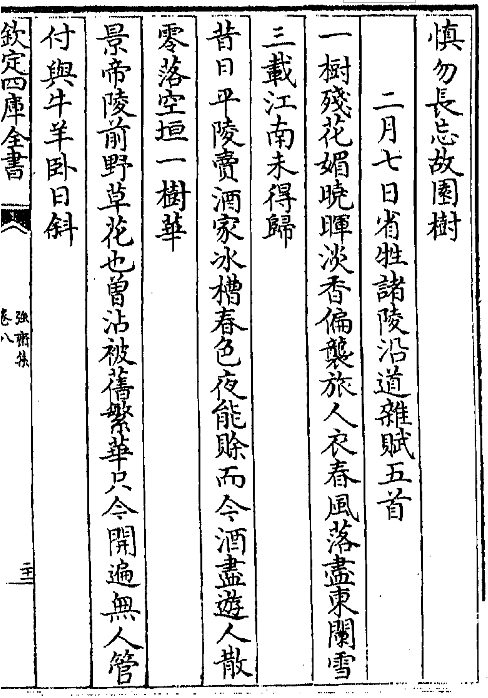 慎勿長忘故園樹
二月七日省牲諸陵沿道雜賦五首
一樹殘花媚曉暉淡香偏襲旅人衣春風落盡東闌雪
三載江南未得歸
昔日平陵賣酒家冰槽春色夜能賒而今酒盡遊人散
零落空垣一樹華
景帝陵前野草花也曾沾被舊繁華只今開遍無人管
付與牛羊卧日斜
欽定四庫全書
強齋集
卷八